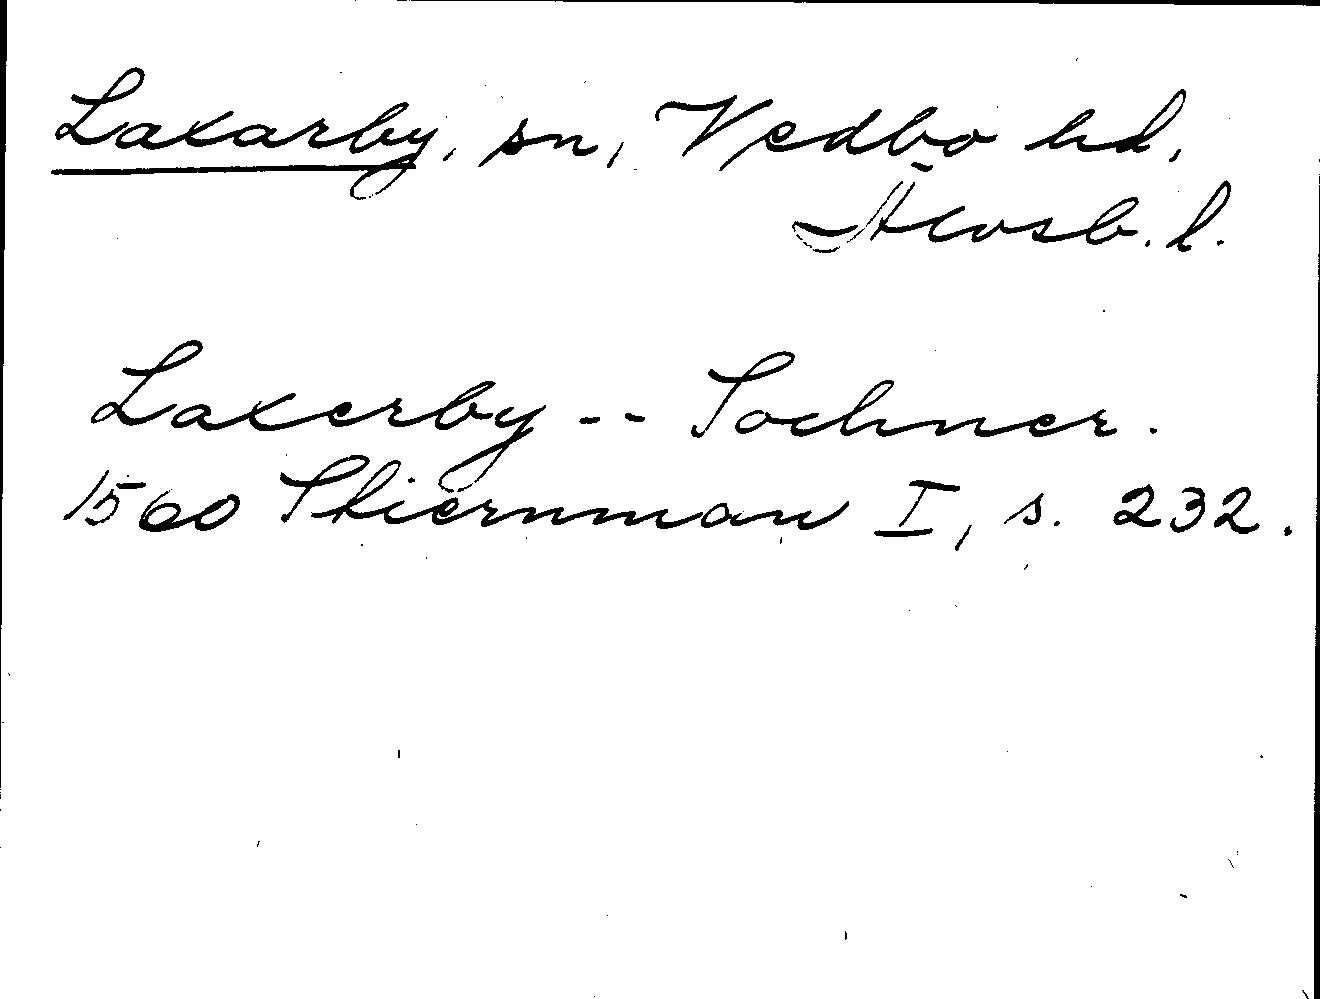 Laxarby, sn, Vedbo hd,
Älvsb. l.
Laxerby -- Sochner.
1560 Stiernman I, s. 232.